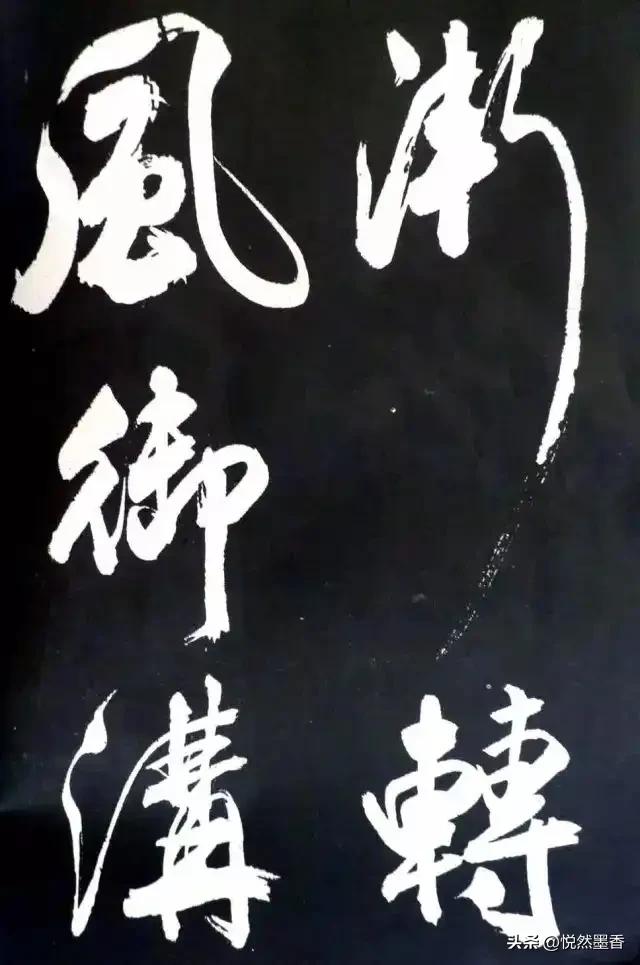 漸轉
風御溝
头条 @悦然墨香